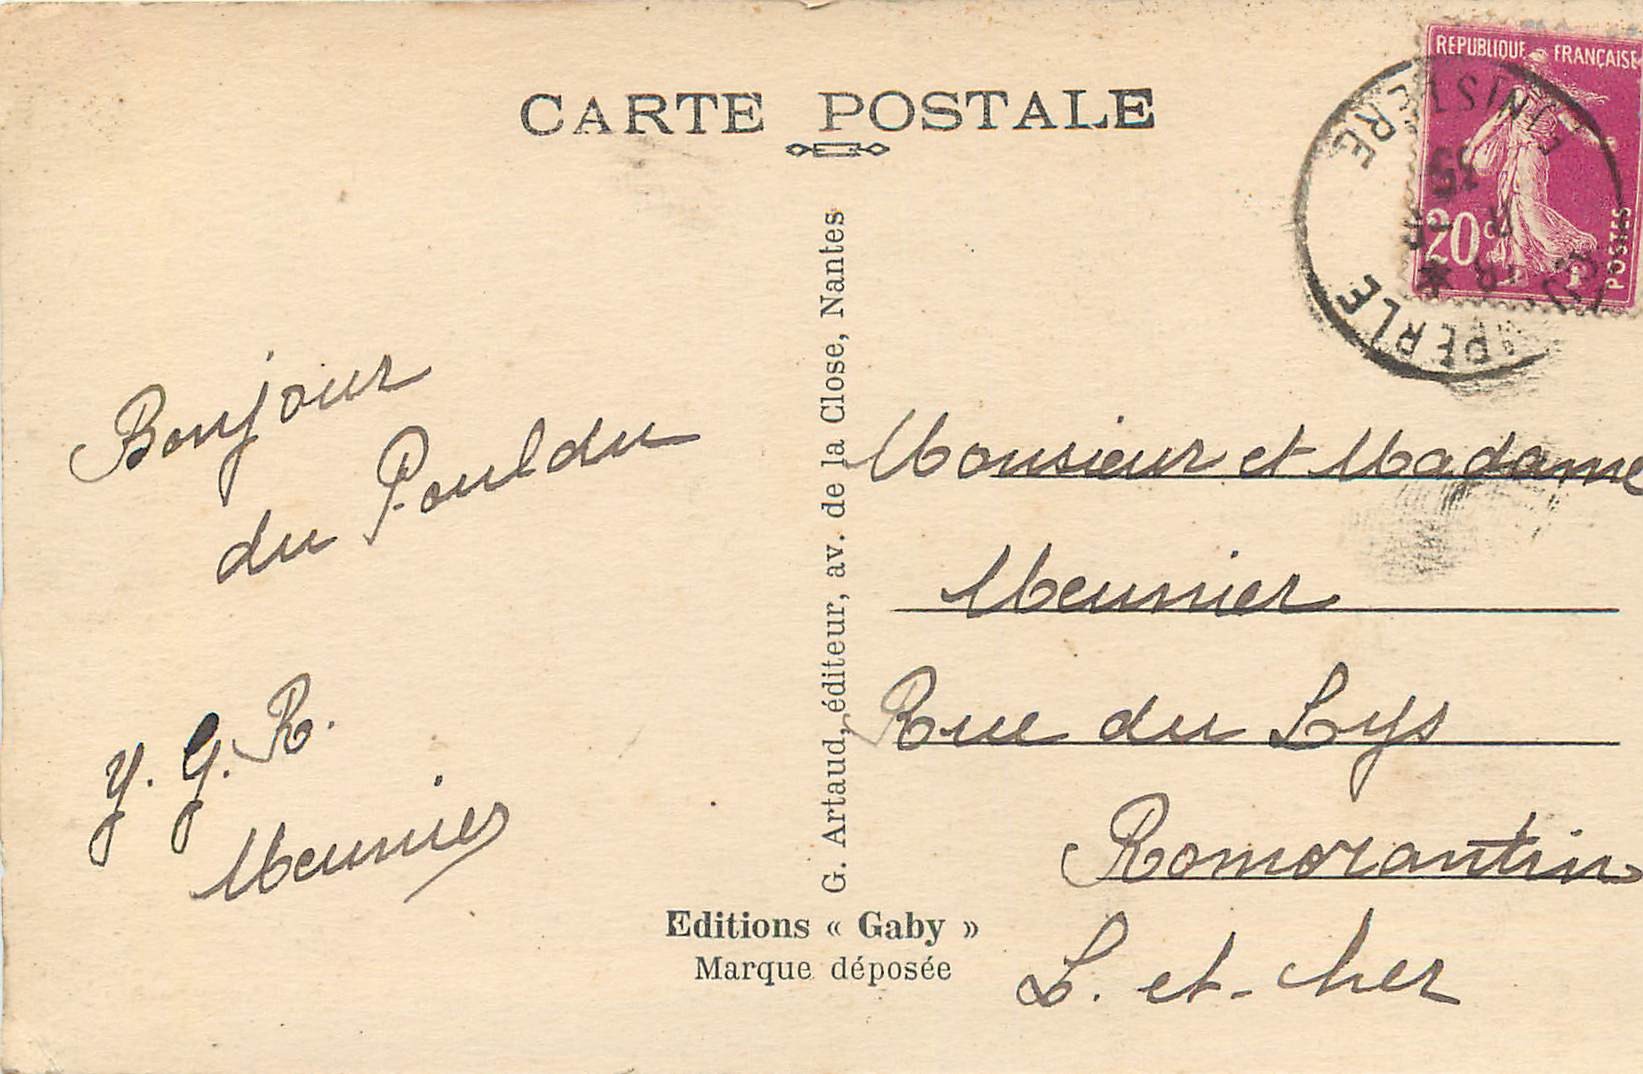 CARTE POSTALE
REPUBLIQUE FRANÇAISE
20c
POSTES
FINISTERE
35
Bonjour
du Pouldu
Y. G. R.
Meunier
G. Artaud, éditeur, av. de la Close, Nantes
Editions « Gaby »
Marque déposée
Monsieur et Madame
Meunier
Rue du Lys
Romorantin
L. et-Cher